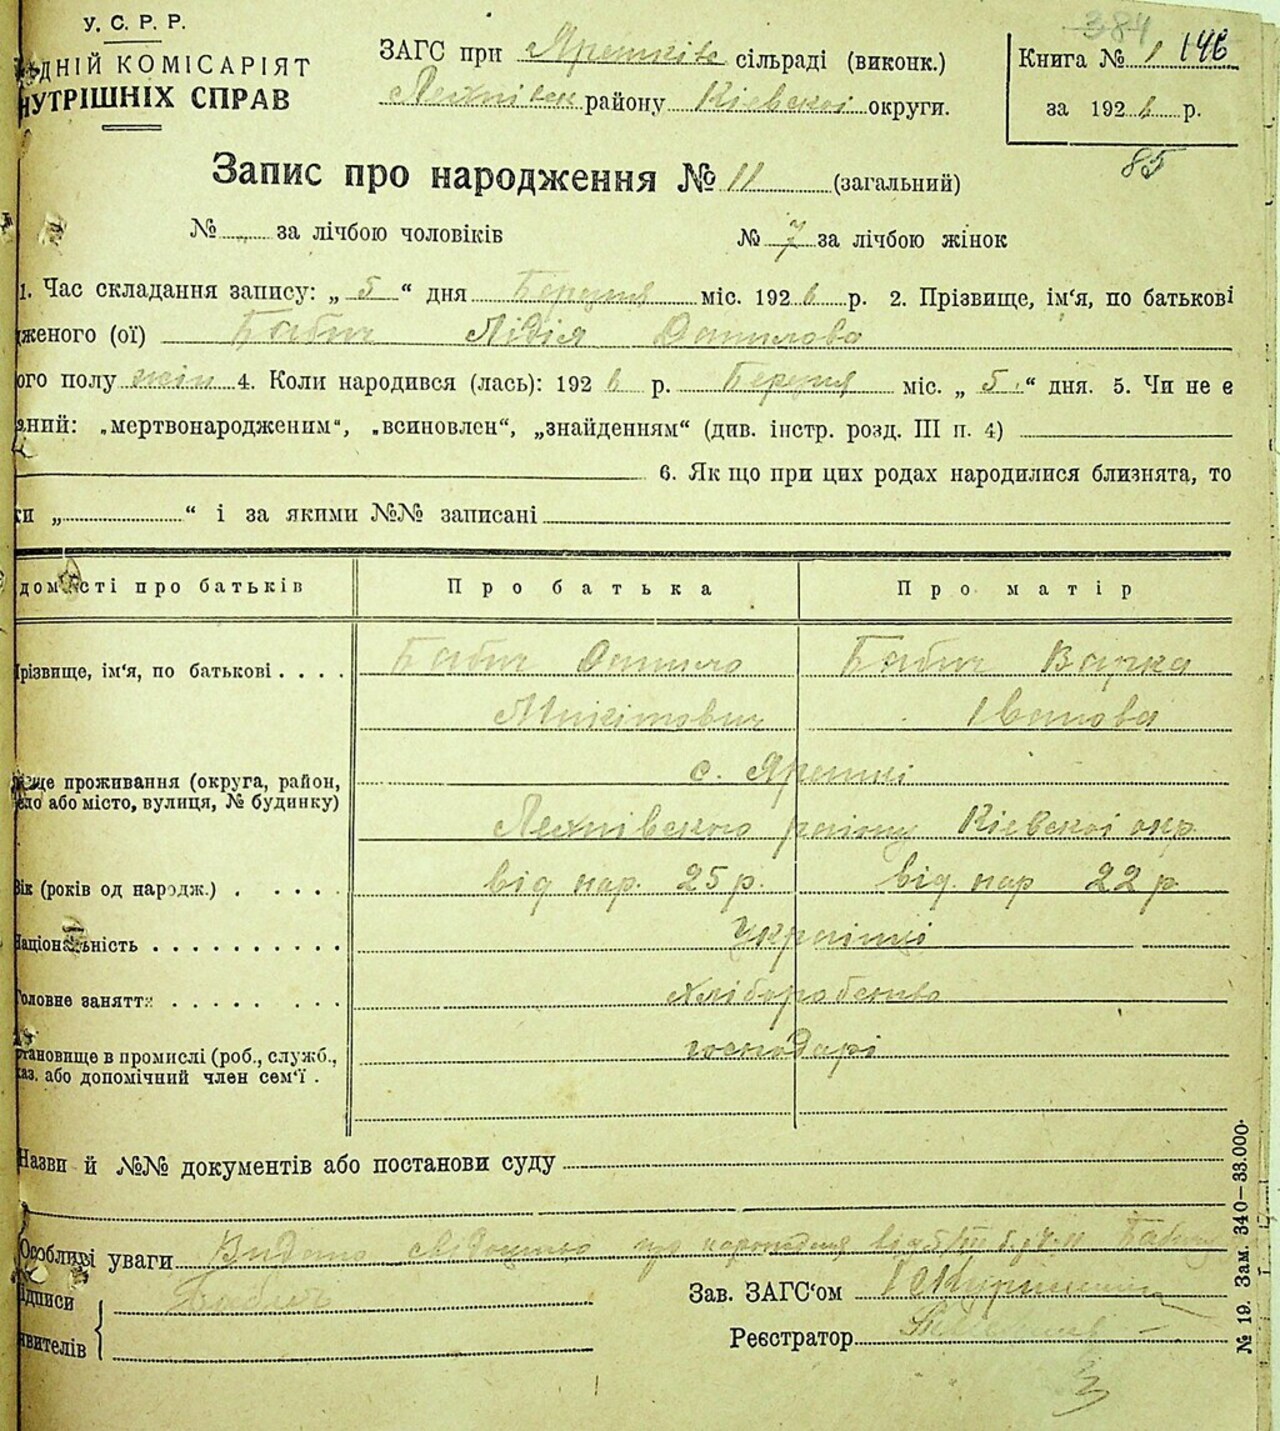 У. С. Р. Р.
ДНІЙ КОМІСАРІЯТ
НУТРІШНІХ СПРАВ
ЗАГС при Ярешківс сільраді (виконк.)
району Кіевскоі округи.
384
Книга № 1 146
за 192 6 р.
85
Запис про народження № 11 (загальний)
№ „ за лічбою чоловіків № 7 за лічбою жінок
1. Час складання запису: „ 5 “ дня Березня міс. 192 6 р. 2. Прізвище, ім‘я, по батькові
женого (ої) Бабич Лідія Данилова
ого полу жін 4. Коли народився (лась): 192 6 р. Березня міс. „ 5 “ дня. 5. Чи не є
аний: „мертвонародженим“, „всиновлен“, „знайденням“ (див. інстр. розд. III п. 4)
6. Як що при цих родах народилися близнята, то
ки „ “ і за якими №№ записані
домості про батьків Про батька Про матір
Прізвище, ім‘я, по батькові . . . . Бабич Данило Бабич Варка
Микітович Іванова
с. Ярешкі
ще проживання (округа, район,
ло або місто, вулиця, № будинку)
району Кіевскоі окр.
Вік (років од народж.) . . . . . від нар. 25 р. від. нар 22 р
Національність . . . . . . . . . . Украінці
Головне заняття . . . . . . . . хліборобство
тановище в промислі (роб., служб.,
каз. або допомічний член сем‘ї . господарі
Назви й №№ документів або постанови суду
Особливі уваги Видано свідоцтво про народження від 5/III б. р. № 11 Бабич
ідписи
явителів Бабич
Зав. ЗАГС‘ом
Реєстратор
№ 19. Зам. 340—33.000.